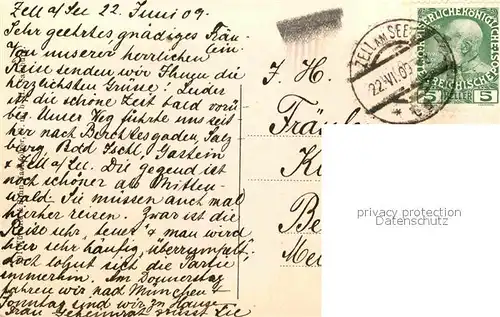 Zell a/See 22. Juni 09.
Sehr geehrtes gnädiges Fräu-
lein
Von unserer herrlichen
Reise senden wir Ihnen die
herzlichsten Grüsse! Leider
ist die schöne Zeit bald vorü-
ber. Unser Weg führte uns seit-
her nach Berchtesgaden, Salz
burg, Bdd Ischl, Gastein
& Zell a/See. Die Gegend ist
noch schöner als Mitten-
wald. Sie müssen auch mal
hierher reisen. Zwar ist die
Reise sehr teuer & man wird
hier sehr häufig „überrumpelt“,
doch lohnt sich die Partie
immerhin. Am Donnerstag
fahren wir nach München &
Sonntag sind wir zu Hause.
Frau Geheimrat Sie
I. H.
Fräule
K
Be
Me
ZELL AM SEE
22.VI.09
5 5
privacy protection
Datenschutz